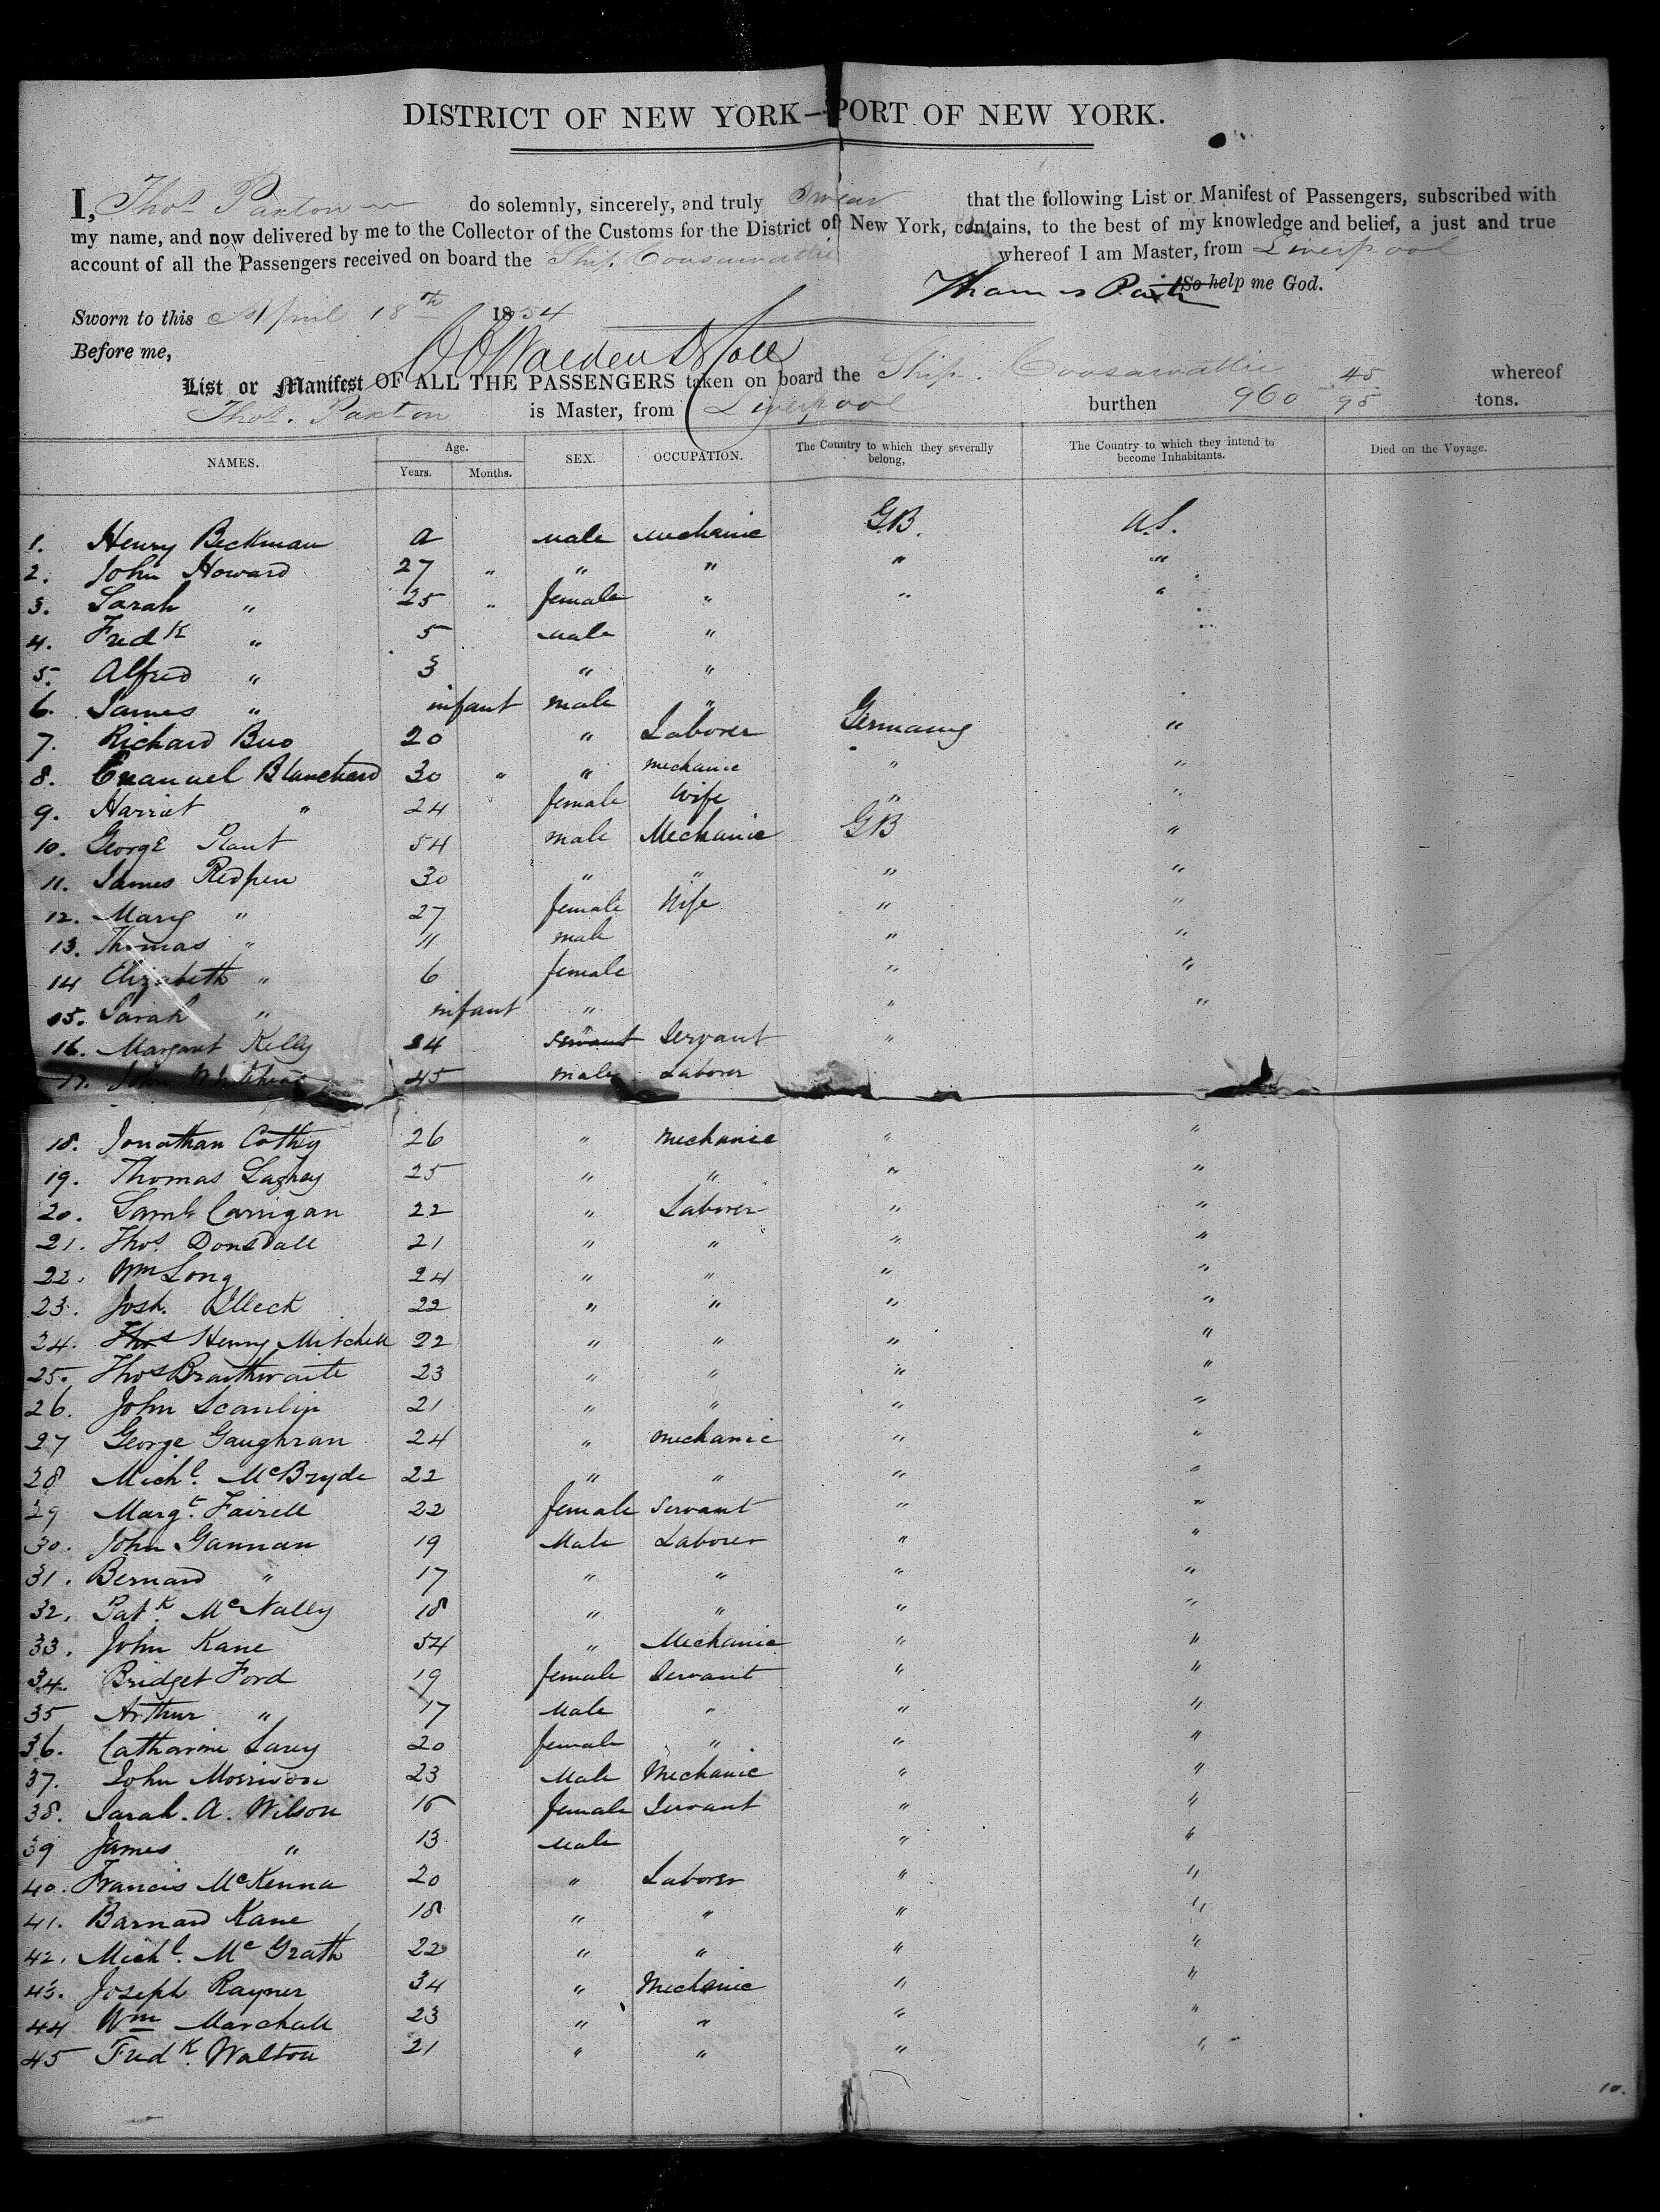 DISTRICT OF NEW YORK—PORT OF NEW YORK.
I, Thos. Paxton do solemnly, sincerely, and truly swear that the following List or Manifest of Passengers, subscribed with
my name, and now delivered by me to the Collector of the Customs for the District of New York, contains, to the best of my knowledge and belief, a just and true
account of all the Passengers received on board the Ship Coosawattie whereof I am Master, from Liverpool
So help me God.
Sworn to this April 18th 1854
Before me,
List or Manifest OF ALL THE PASSENGERS taken on board the Ship. Coosawattie whereof
Thos. Paxton is Master, from Liverpool burthen 960 45/95 tons.
NAMES. Age. Years. Months. SEX. OCCUPATION. The Country to which they severally belong, The Country to which they intend to become Inhabitants. Died on the Voyage.
1. Henry Beckman a male mechanic GB. U.S.
2. John Howard 27 " " " " "
3. Sarah " 25 " female " " "
4. Fredk " 5 male "
5. Alfred " 3 " "
6. James " infant male "
7. Richard 20 " Laborer Germany "
8. Emanuel Blanchard 30 " " mechanic " "
9. Harriet " 24 female Wife " "
10. George Plant 54 male Mechanic GB "
11. James Redpen 30 " " " "
12. Mary " 27 female Wife " "
13. Thomas " 11 male " "
14 Elizabeth " 6 female " "
15. Sarah " infant " " "
16. Margaret Kelly 24 servant Servant "
17. John 45 male Laborer
18. Jonathan 26 " mechanic " "
19. Thomas 25 " " " "
20. Saml Carrigan 22 " Laborer " "
21. Thos. 21 " " " "
22. Wm Long 24 " " " "
23. Josh. 22 " " " "
24. Thos Henry Mitchell 22 " " " "
25. Thos Braithwaite 23 " " " "
26. John Scanlin 21 " " " "
27 George Gaughran 24 " mechanic " "
28 Michl. McBryde 22 " " " "
29 Margt. Fairell 22 female servant " "
30. John Gannan 19 Male Laborer " "
31. Bernard " 17 " " " "
32. Patk. McNally 18 " " " "
33. John Kane 54 " Mechanic " "
34. Bridget Ford 19 female Servant " "
35 Arthur " 17 Male " " "
36. Catharine 20 female " " "
37. John Morrison 23 Male Mechanic " "
38. Sarah. A. Wilson 15 female Servant " "
39 James " 13 Male " "
40. Francis McKenna 20 " Laborer " "
41. Barnard Kane 18 " " " "
42. Michl. McGrath 22 " " " "
43. Joseph Rayner 34 " Mechanic " "
44 Wm Marchall 23 " " " "
45 Fredk. Walton 21 " " " "
10.